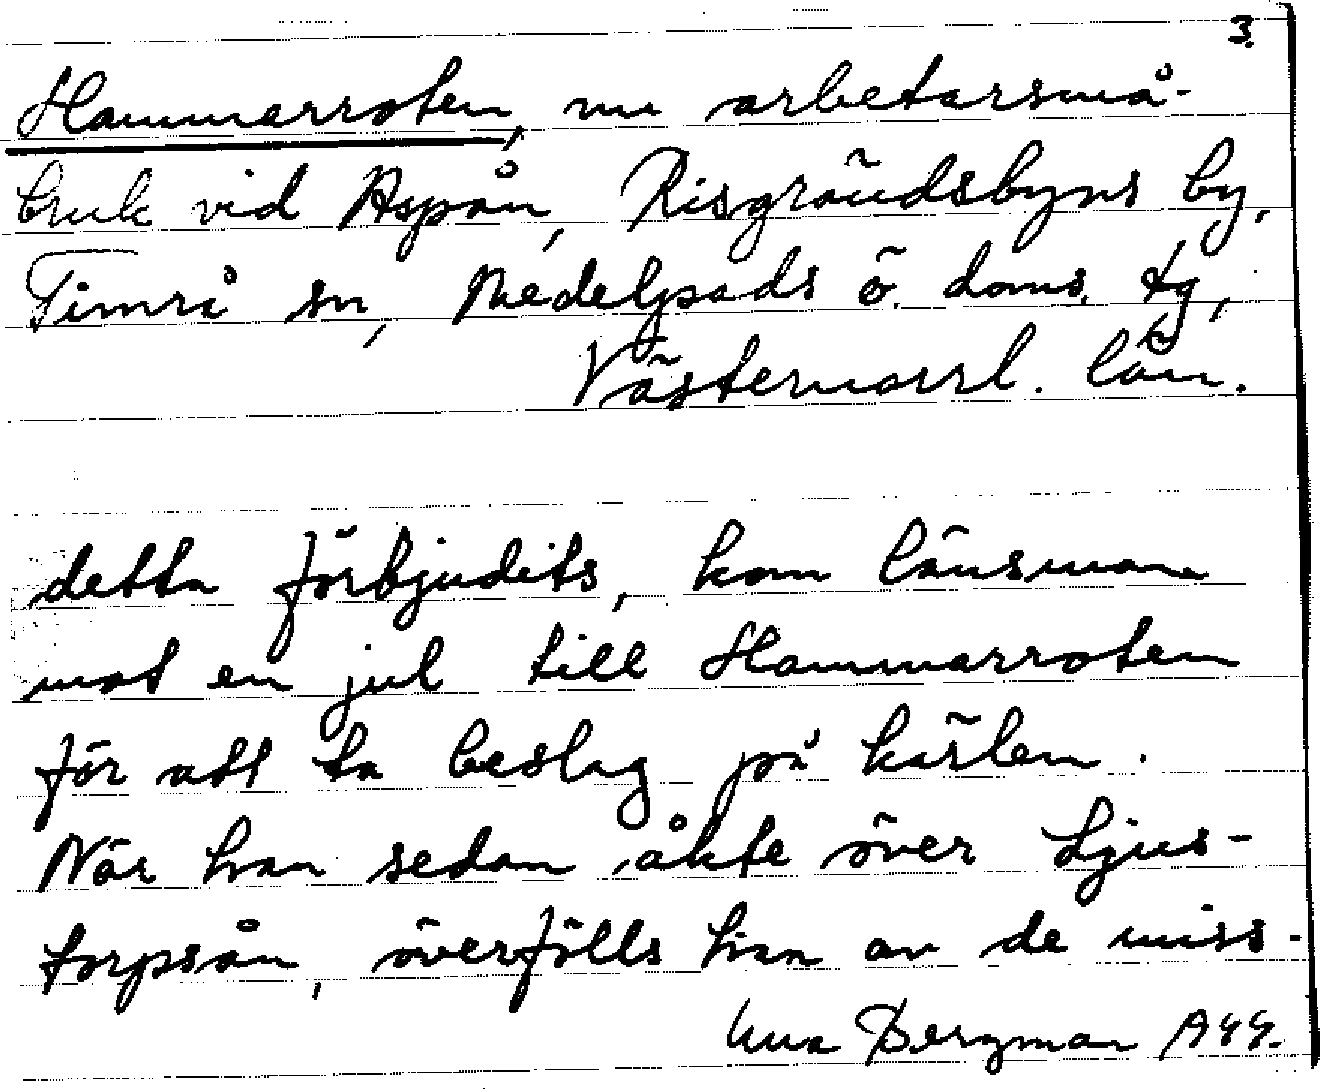 3.
Hammarroten, nu arbetarsmå-
bruk vid Aspån, Risgrändsbyns by,
Timrå sn, Medelpads ö. doms. tg,
Västernorrl. län.
detta förbjudits, kom länsman
mot en jul till Hammarroten
för att ta beslag på kärlen.
När han sedan åkte över Ljus-
torpsån, överfölls han av de miss-
Bergman